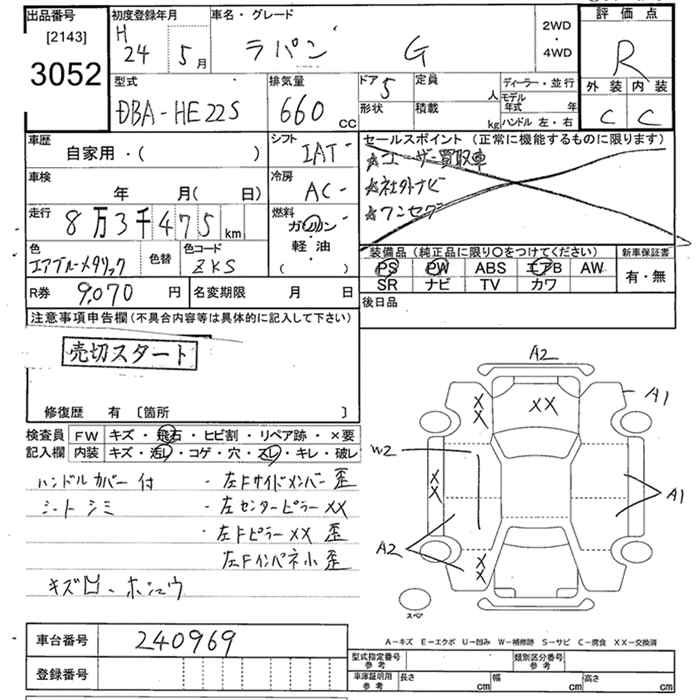 出品番号 初度登録年月 車名・グレード 2WD・4WD 評価点
[2143] H 24 5月 ラパン G R
3052 外装 内装
型式 排気量 ドア 5 定員 人 ディーラー・並行
DBA-HE22S 660 cc 形状 積載 kg モデル年式 年 C C
ハンドル 左・右
車歴 シフト セールスポイント (正常に機能するものに限ります)
自家用・( ) IAT ☆ユーザー買取車
車検 冷房 ☆社外ナビ
年 月(日) AC ☆ワンセグ
走行 燃料
8万3千475km ガソリン・軽油・( )
色 色替 色コード 装備品 (純正品に限り〇をつけてください) 新車保証書
エアブルーメタリック ZKS PS PW ABS エアB AW 有・無
R券 9,070円 名変期限 月 日 SR ナビ TV カワ
注意事項申告欄(不具合内容等は具体的に記入して下さい) 後日品
売切スタート
修復歴 有 [箇所 ]
検査員 FW キズ・飛石・ヒビ割・リペア跡・×要
記入欄 内装 キズ・汚レ・コゲ・穴・スレ・キレ・破レ
ハンドルカバー付 ・左Fサイドメンバー歪
シートシミ ・左センターピラーXX
・左FピラーXX 歪
左Fインパネ小歪
キズ凹ーホシュウ
A2
XX XX A1
W2
XX A1
A2
XX
スペア
A-キズ E-エクボ U-凹み W-補修跡 S-サビ C-腐食 XX-交換済
車台番号 240969
登録番号
型式指定番号 参考 類別区分番号 参考
車庫証明用 参考 長さ cm 幅 cm 高さ cm